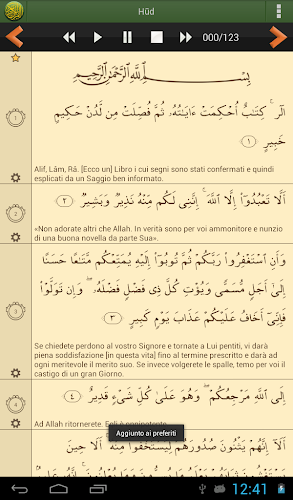 Hūd
000/123
بِسْمِ اللَّهِ الرَّحْمَٰنِ الرَّحِيمِ
الٓر ۚ كِتَٰبٌ أُحْكِمَتْ ءَايَٰتُهُۥ ثُمَّ فُصِّلَتْ مِن لَّدُنْ حَكِيمٍ
خَبِيرٍ ١
1
Alif, Lâm, Râ. [Ecco un] Libro i cui segni sono stati confermati e quindi
esplicati da un Saggio ben informato.
أَلَّا تَعْبُدُوٓا۟ إِلَّا ٱللَّهَ ۚ إِنَّنِى لَكُم مِّنْهُ نَذِيرٌ وَبَشِيرٌ ٢
2
«Non adorate altri che Allah. In verità sono per voi ammonitore e nunzio
di una buona novella da parte Sua».
وَأَنِ ٱسْتَغْفِرُوا۟ رَبَّكُمْ ثُمَّ تُوبُوٓا۟ إِلَيْهِ يُمَتِّعْكُم مَّتَٰعًا حَسَنًا
إِلَىٰٓ أَجَلٍ مُّسَمًّى وَيُؤْتِ كُلَّ ذِى فَضْلٍ فَضْلَهُۥ ۖ وَإِن تَوَلَّوْا۟
فَإِنِّىٓ أَخَافُ عَلَيْكُمْ عَذَابَ يَوْمٍ كَبِيرٍ ٣
3
Se chiedete perdono al vostro Signore e tornate a Lui pentiti, vi darà
piena soddisfazione [in questa vita] fino al termine prescritto e darà ad
ogni meritevole il merito suo. Se invece volgerete le spalle, temo per voi il
castigo di un gran Giorno.
إِلَى ٱللَّهِ مَرْجِعُكُمْ ۖ وَهُوَ عَلَىٰ كُلِّ شَىْءٍ قَدِيرٌ ٤
4
Ad Allah ritornerete. Egli è onnipotente.
Aggiunto ai preferiti
أَلَآ إِنَّهُمْ يَثْنُونَ صُدُورَهُمْ لِيَسْتَخْفُوا۟ مِنْهُ ۚ أَلَا حِينَ
12:41